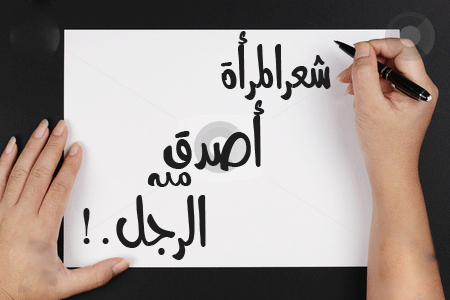 شعر المرأة
أصدق
منه
الرجل . . !